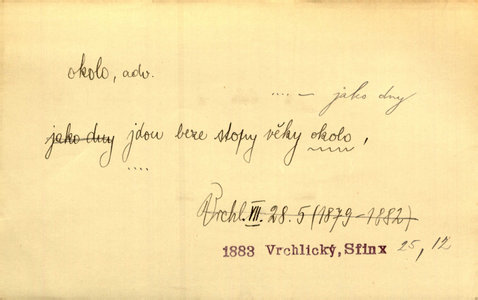 okolo, adv.
.... – jako dny
jako dny jdou beze stopy věky okolo,
....
Vrchl. VII. 28. 5 (1879–1882)
1883 Vrchlický, Sfinx 25, 12